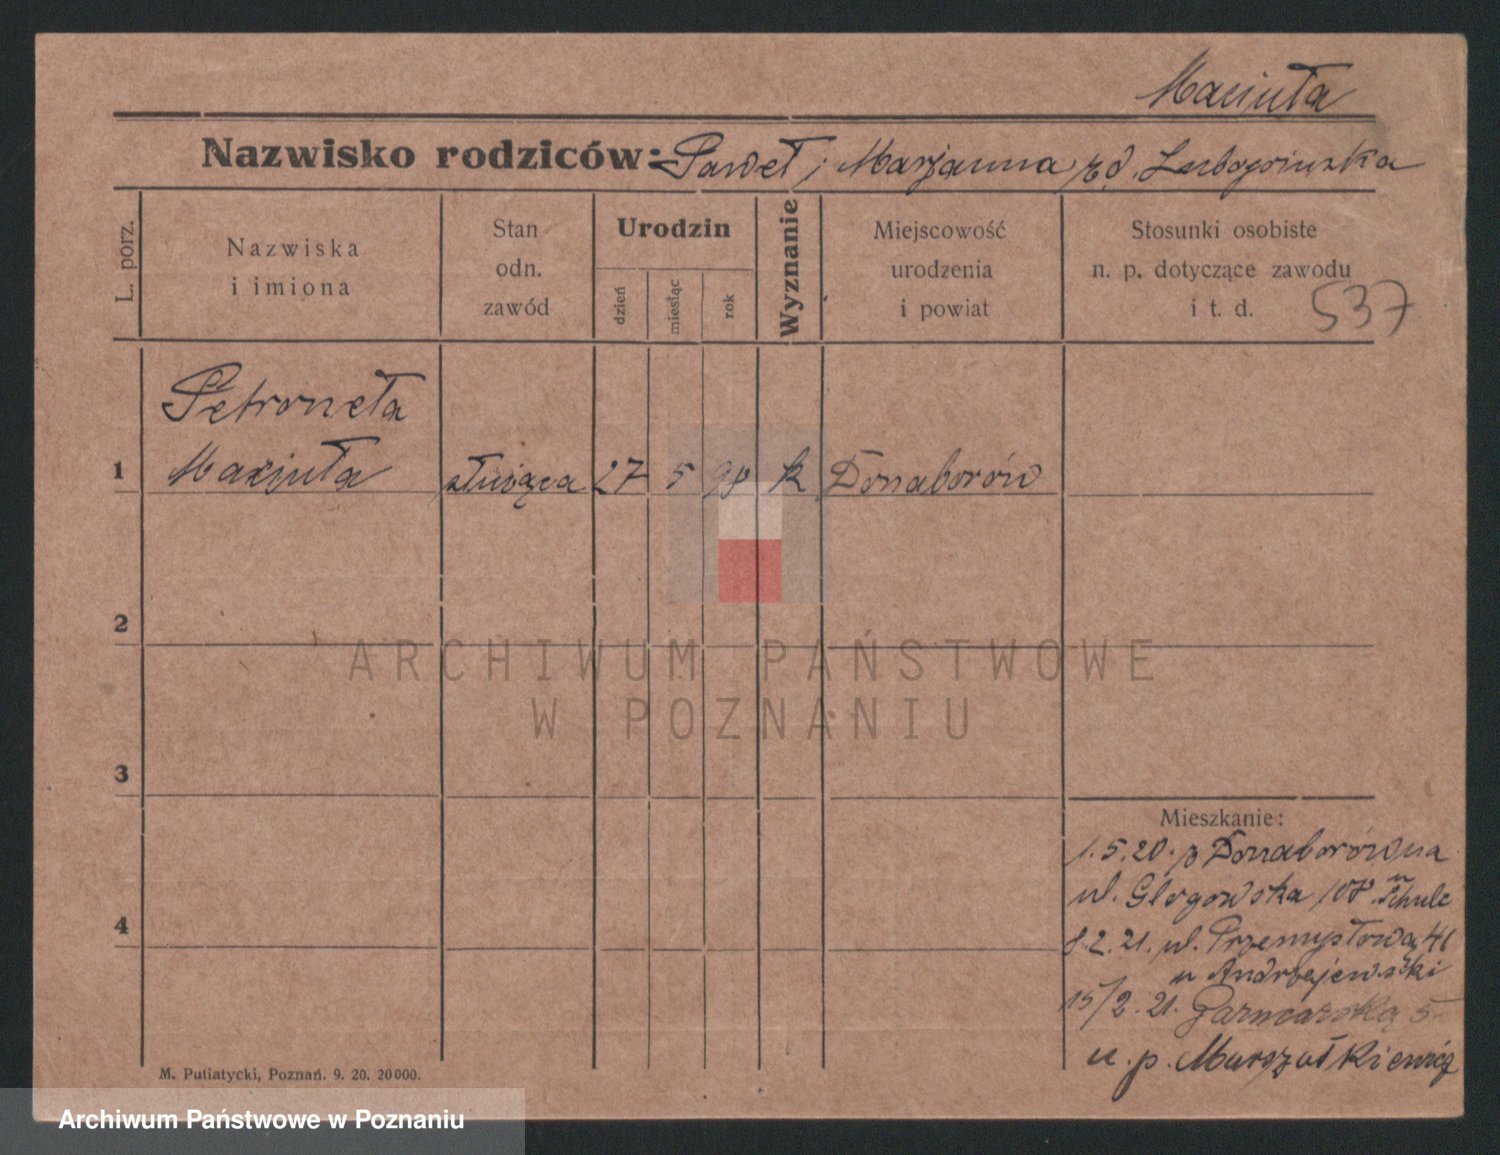 Maciuła
Nazwisko rodziców: Paweł i Marjanna
L. porz.
Nazwiska
i imiona
Stan
odn.
zawód
Urodzin
dzień
miesiąc
rok
Wyznanie
Miejscowość
urodzenia
i powiat
Stosunki osobiste
n. p. dotyczące zawodu
i t. d.
537
Petroneła
1 Maciuła służąca 27 5 98 k Donaborów
2
3
4
ARCHIWUM PAŃSTWOWE
W POZNANIU
Mieszkanie:
1.5.20. z Donaborowa na
ul. Głogowska 108 u Schulc
8.2.21. ul. Przemysłowa 41
u Andrzejewski
15/2.21. Garncarską 5
u. p. Marszałkiewicz
M. Putiatycki, Poznań. 9. 20. 20000.
Archiwum Państwowe w Poznaniu